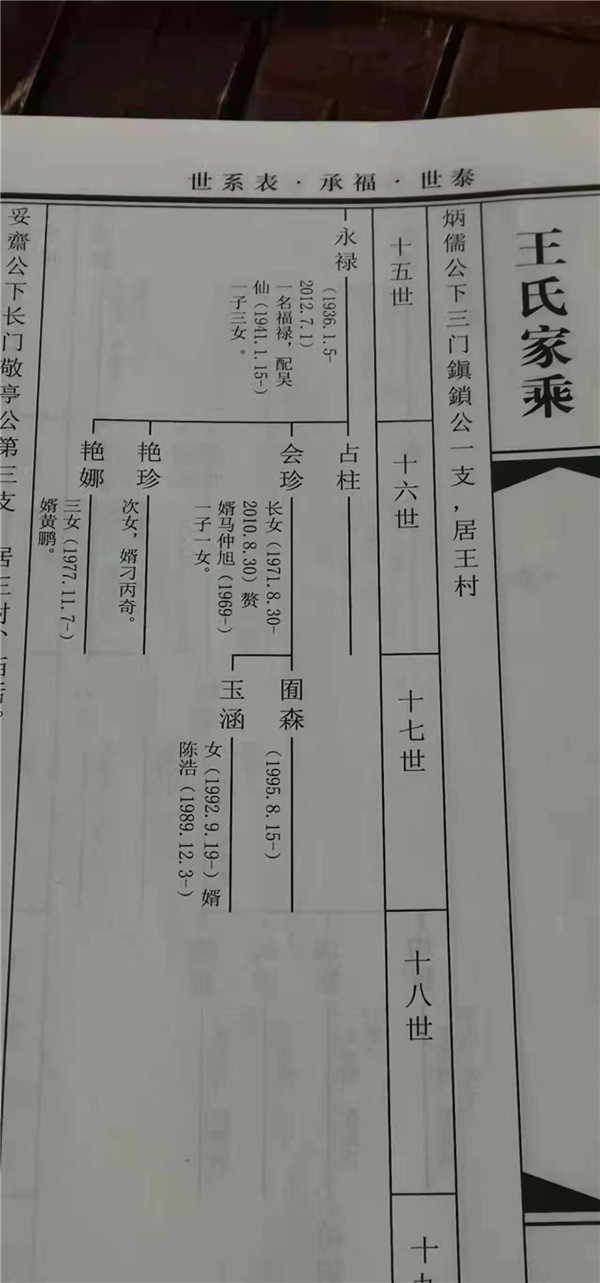 泰世·福承·表系世
王氏家乘
炳儒公下三门鎭鎖公一支,居王村
十五世
永禄
(1936.1.5-
2012.7.1)
一名福禄,配吴
仙(1941.1.15-)
一子三女。
十六世
占柱
会珍
长女(1971.8.30-
2010.8.30)赘
婿马仲旭(1969-)
一子一女。
艳珍
次女,婿刁丙奇。
艳娜
三女(1977.11.7-)
婿黄鹏。
十七世
囿森
(1995.8.15-)
玉涵
女(1992.9.19-)婿
陈浩(1989.12.3-)
十八世
十九
妥齋公下长门敬亭公第三支